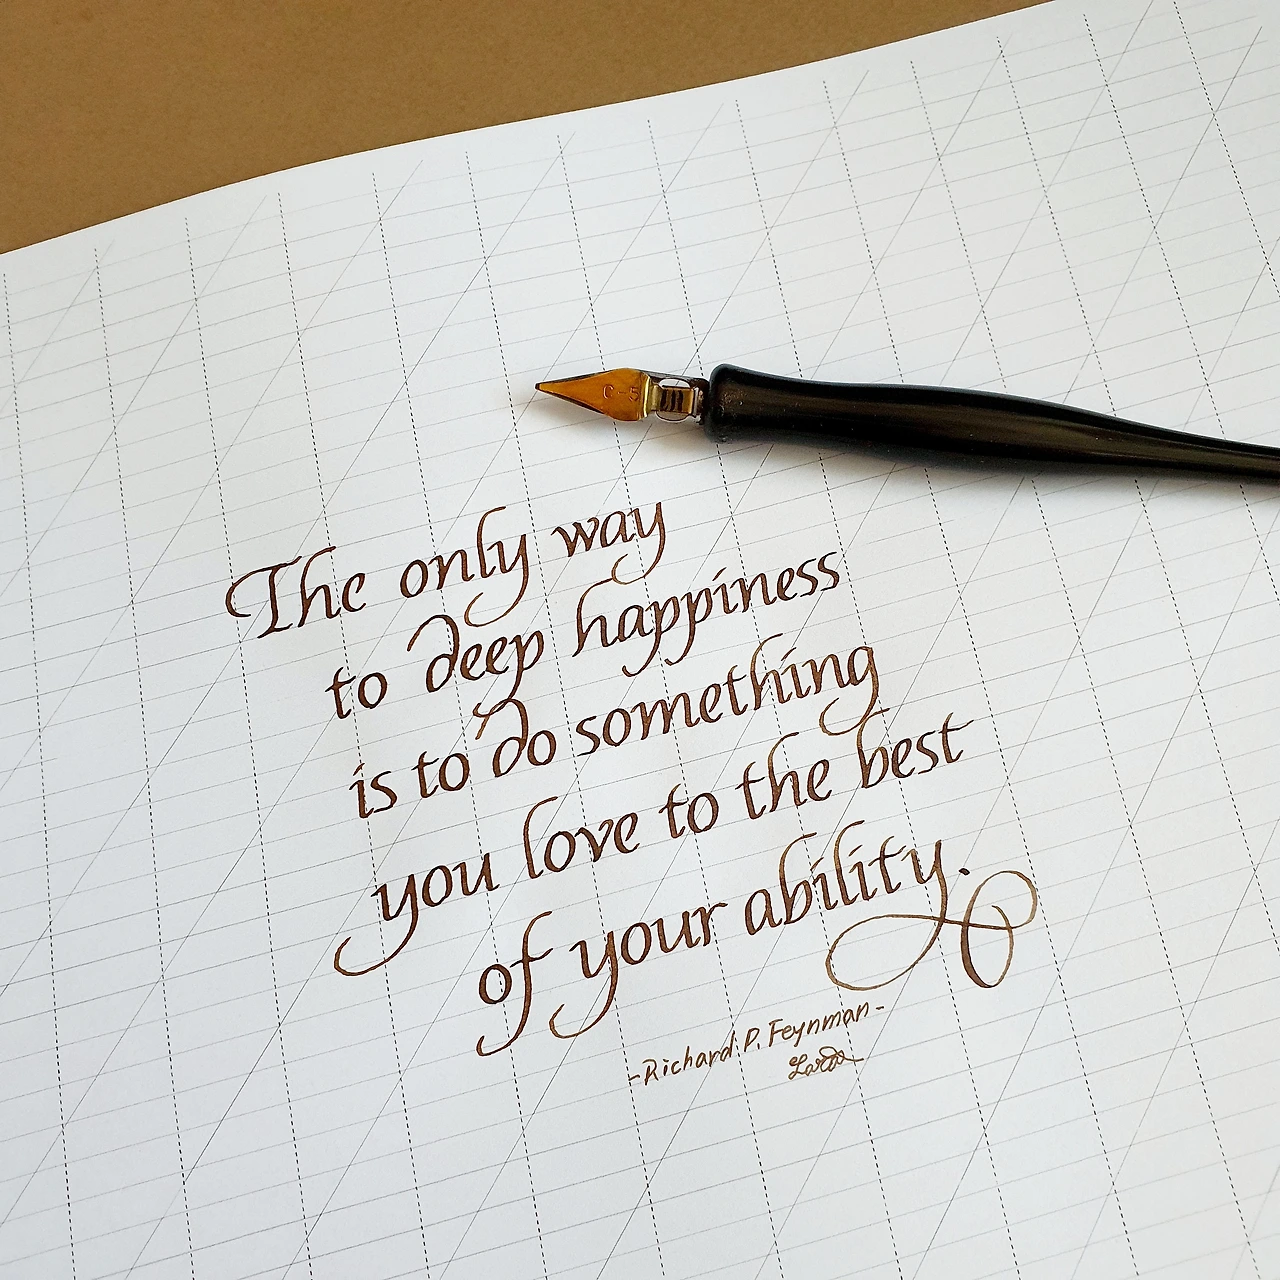 C-5
The only way
to deep happiness
is to do something
you love to the best
of your ability.
-Richard P. Feynman-